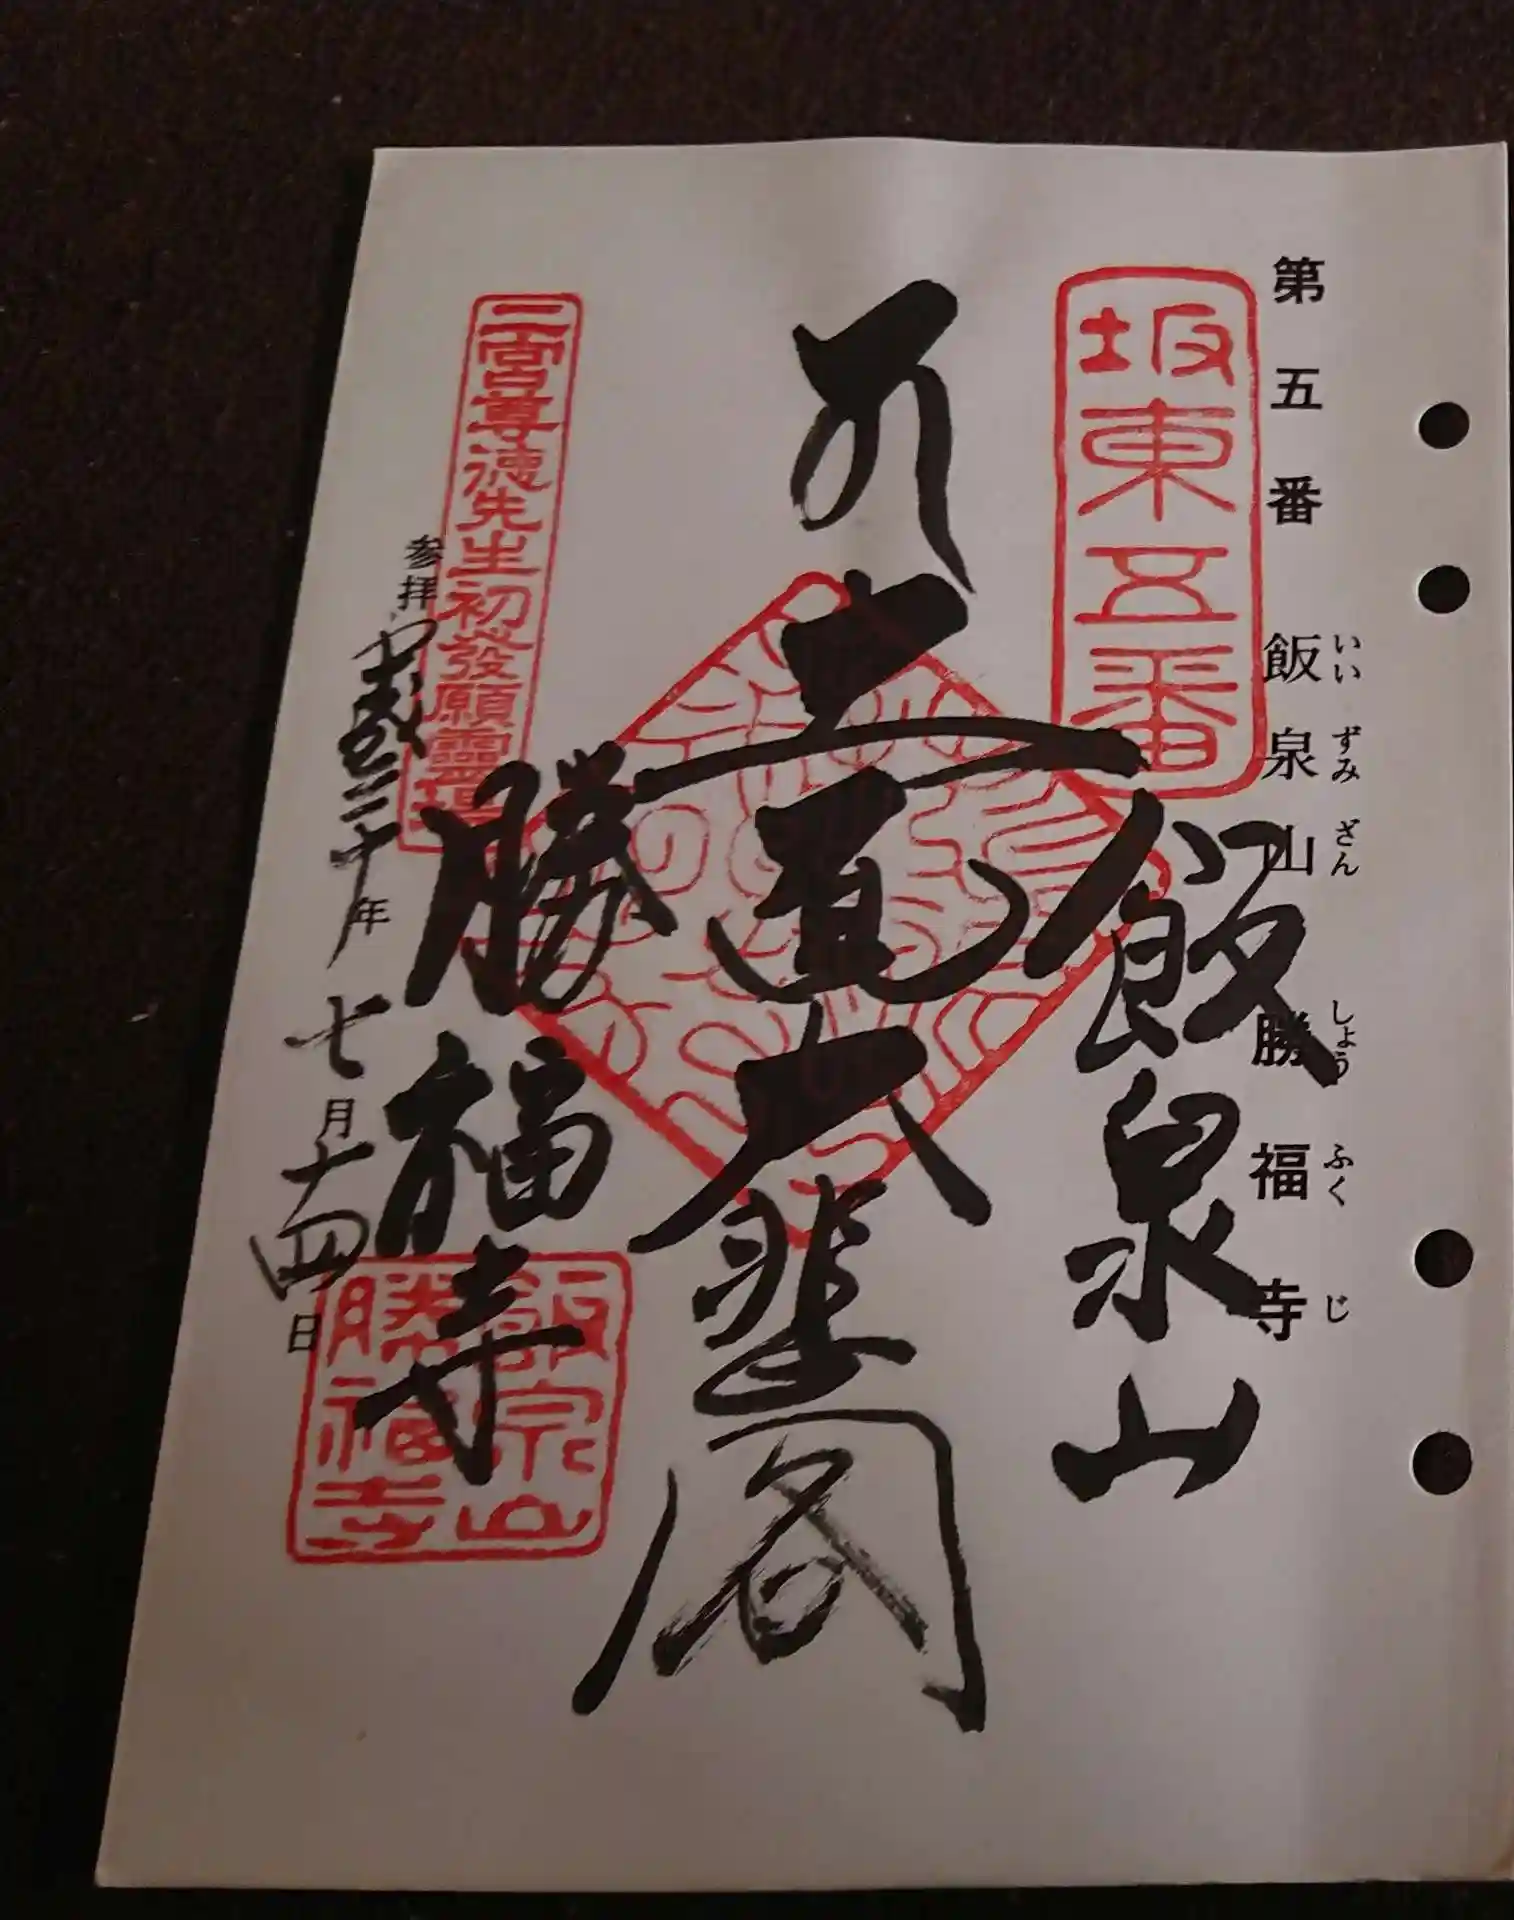 第五番 飯泉山 勝福寺
いいずみざん しょうふくじ
坂東五番
飯泉山
大悲閣
勝福寺
二宮尊徳先生初發願靈場
参拝 平成三十年 七月十四日
飯泉山
勝福寺